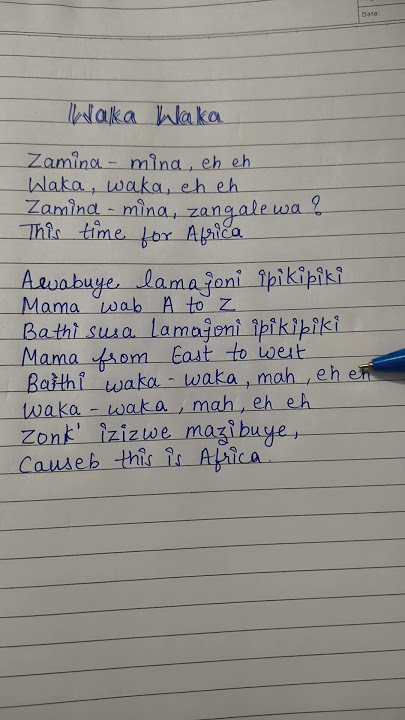 Date:
Waka Waka
Zamina - mina, eh eh
Waka, waka, eh eh
Zamina - mina, zangalewa?
This time for Africa
Awabuye lamajoni ipikipiki
Mama wab A to Z
Bathi susa lamajoni ipikipiki
Mama from East to west
Baithi waka - waka, mah, eh eh
Waka - waka, mah, eh eh
Zonk' izizwe mazibuye,
Causeb this is Africa.